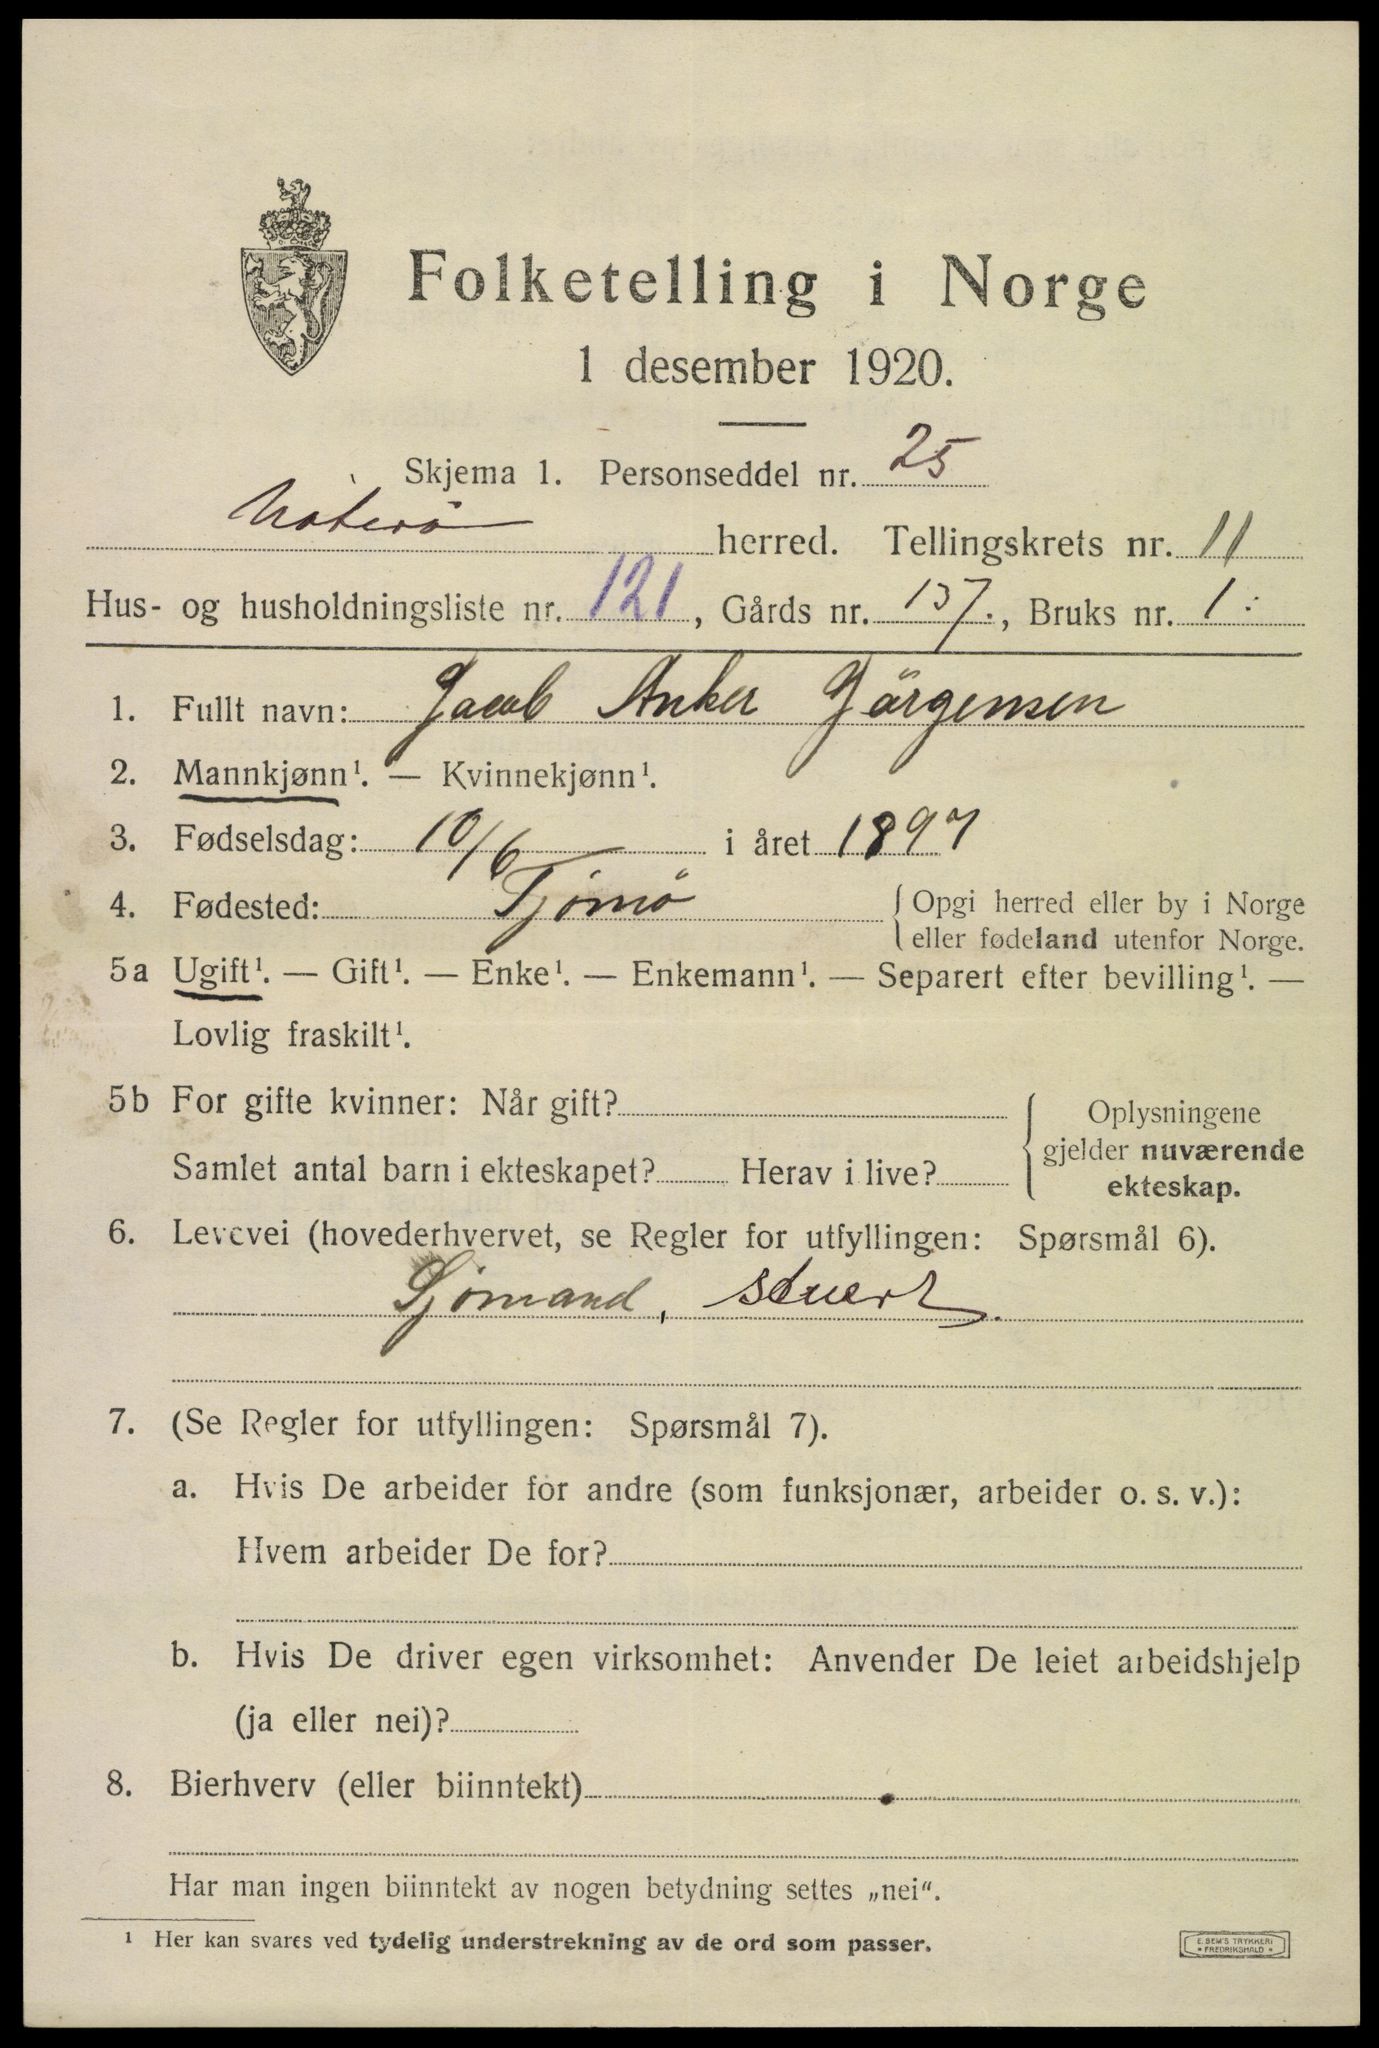 Folketelling i Norge
1 desember 1920.
Skjema 1. Personseddel nr. 25
Nøterö herred. Tellingskrets nr. 11
Hus- og husholdningsliste nr. 121, Gårds nr. 137., Bruks nr. 1:
1. Fullt navn: Jacob Anker Jörgensen
2. Mannkjønn¹. — Kvinnekjønn¹.
3. Fødselsdag: 10/6 i året 1897
4. Fødested: Tjömö { Opgi herred eller by i Norge
eller fødeland utenfor Norge.
5a Ugift¹. — Gift¹. — Enke¹. — Enkemann¹. — Separert efter bevilling¹. —
Lovlig fraskilt¹.
5b For gifte kvinner: Når gift?
Samlet antal barn i ekteskapet? Herav i live?
{ Oplysningene
gjelder nuværende
ekteskap.
6. Levevei (hovederhvervet, se Regler for utfyllingen: Spørsmål 6).
Sjömand, stuert.
7. (Se Regler for utfyllingen: Spørsmål 7).
a. Hvis De arbeider for andre (som funksjonær, arbeider o. s. v.):
Hvem arbeider De for?
b. Hvis De driver egen virksomhet: Anvender De leiet arbeidshjelp
(ja eller nei)?
8. Bierhverv (eller biinntekt)
Har man ingen biinntekt av nogen betydning settes „nei“.
¹ Her kan svares ved tydelig understrekning av de ord som passer.
E. SEM'S TRYKKERI
* FREDRIKSHALD *